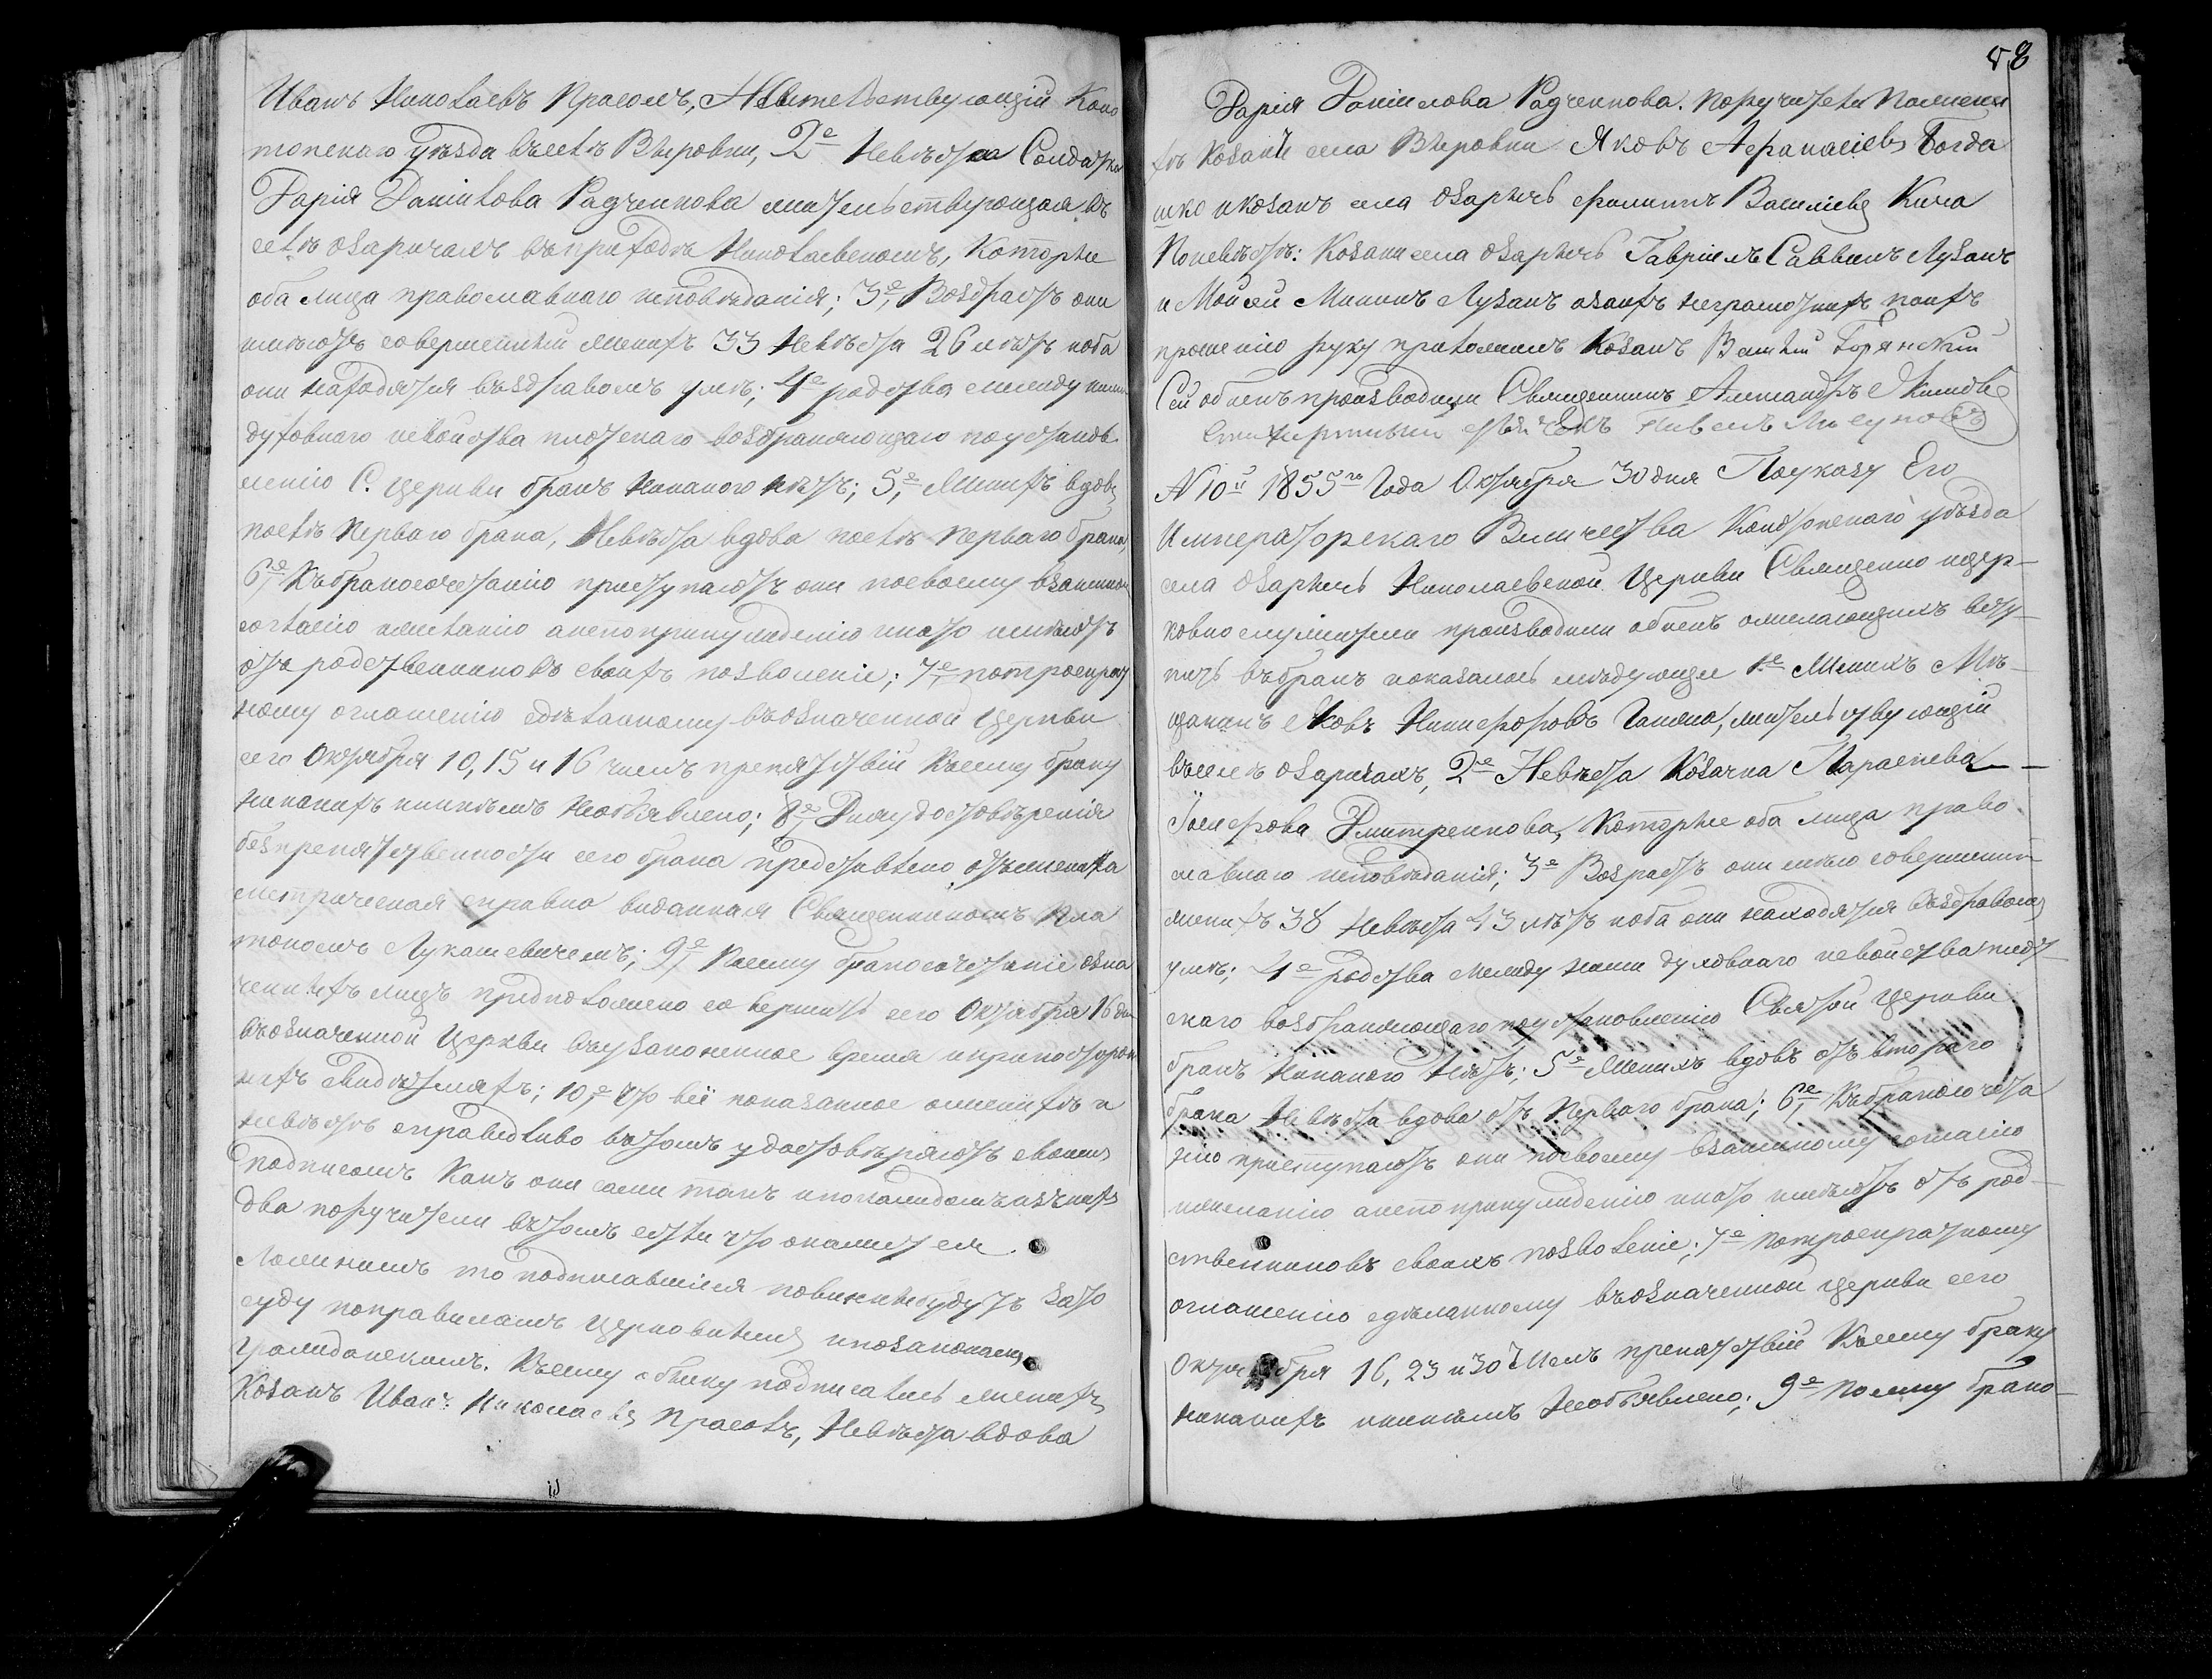 Иванъ Николаевъ Прасолъ, Жительствующій Коно
топскаго уѣзда въселѣ Вѣровки, 2е Невѣста Солдатка
Дарія Даніилова Радченкова жительствующая въ
селѣ Озаричахъ въприходѣ Николаевскомъ, Которые
оба лица православнаго исповѣданія; 3е, Возрастъ они
имѣютъ совершенный Женихъ 33 Невѣста 26 лѣтъ иоба
они находятся въздравомъ умѣ; 4е родства между ними
духовнаго исвойства плотскаго возбраняющаго поустанов
ленію С. Церкви бракъ Никакого нѣтъ; 5е, Женихъ вдовъ
послѣ Перваго брака, Невѣста вдова послѣ Перваго брака,
6е, Къбракосочетанію приступаютъ они посвоему взаимному
согласію ижеланію анепопринужденію инато имѣютъ
отъ родственниковъ своихъ позволеніе; 7е, потроекрат
ному оглашенію сдѣланному въозначенной Церкви
сего Октября 10, 15 и 16 числъ препятствій Късему браку
никакихъ никѣмъ Необъявлено; 8е, Дляудостовѣренія
безпрепятственности сего брака представлено отъжениха
метрическая справка виданная Священникомъ Пла
тономъ Лукашевичемъ; 9е, Посему бракосочетаніе озна
ченныхъ лицъ предположено совершить сего Октября 16 дня
въозначенной Церкви въузаконенное время иприпосторон
нихъ свидѣтеляхъ; 10,е что всё показанное оженихѣ и
невѣстѣ справедливо вътомъ удостовѣряютъ своимъ
подписомъ Какъ они сами такъ ипокаждомъизънихъ
два поручители вътомъ если что окажется
Ложнимъ то подписавшіися повинныбудутъ зато
суду поправиламъ Церковнымъ ипозаконамъ
гражданскимъ. Късему обыску подписались женихъ
Козакъ Иванъ Николаевъ Прасолъ, Невѣста вдова
58
Дарія Даніилова Радченкова. Поручители Поженихѣ
Козаки села Вѣровки Яковъ Афанасіевъ Богда
шко икозакъ села Озаричь Филиппъ Василіевъ Кича
Поневѣстѣ: Козаки села Озаричь Гавріилъ Саввинъ Лузанъ
и Мойсей Мининъ Лузанъ азанихъ неграмотнихъ поихъ
прошенію руку приложилъ Козакъ
Сей обыскъ производили Священникъ Александръ Якимовъ
№10й 1855го Года Октября 30 дня Поуказу Его
Императорскаго Величества Конотопскаго уѣзда
села Озаричь Николаевской Церкви Священно ицер-
ковно служители производили обыскъ ожелающихъ всту-
пить въбракъ иоказалось слѣдующее 1е Женихъ Мѣ-
щанинъ Яковъ Никифоровъ Ганжа, жительствующій
въселѣ Озаричахъ, 2е Невѣста Козачка Параскева
Іосифова Дмитренкова, Которые оба лица право
славнаго исповѣданія; 3е Возрастъ они имѣю совершенний
женихъ 38 Невѣста 43 лѣтъ иоба они находятся въздравомъ
умѣ; 4е родства между ними духовнаго исвойства плот-
скаго возбраняющаго поустановленію Святой Церкви
бракъ Никакого Нѣтъ; 5е Женихъ вдовъ отъ втораго
брака Невѣста вдова отъ Перваго брака; 6е, Къбракосочета
нію приступаютъ они посвоему взаимному согласію
ижеланію анепопринужденію инато имѣютъ отъ род-
ственниковъ своихъ позволеніе; 7е Потроекратному
оглашенію сдѣланному въозначенной Церкви сего
Октября 16, 23 и 30 числъ препятствій Късему браку
никакихъ никѣмъ Необъявлено; 9е Посему брако-